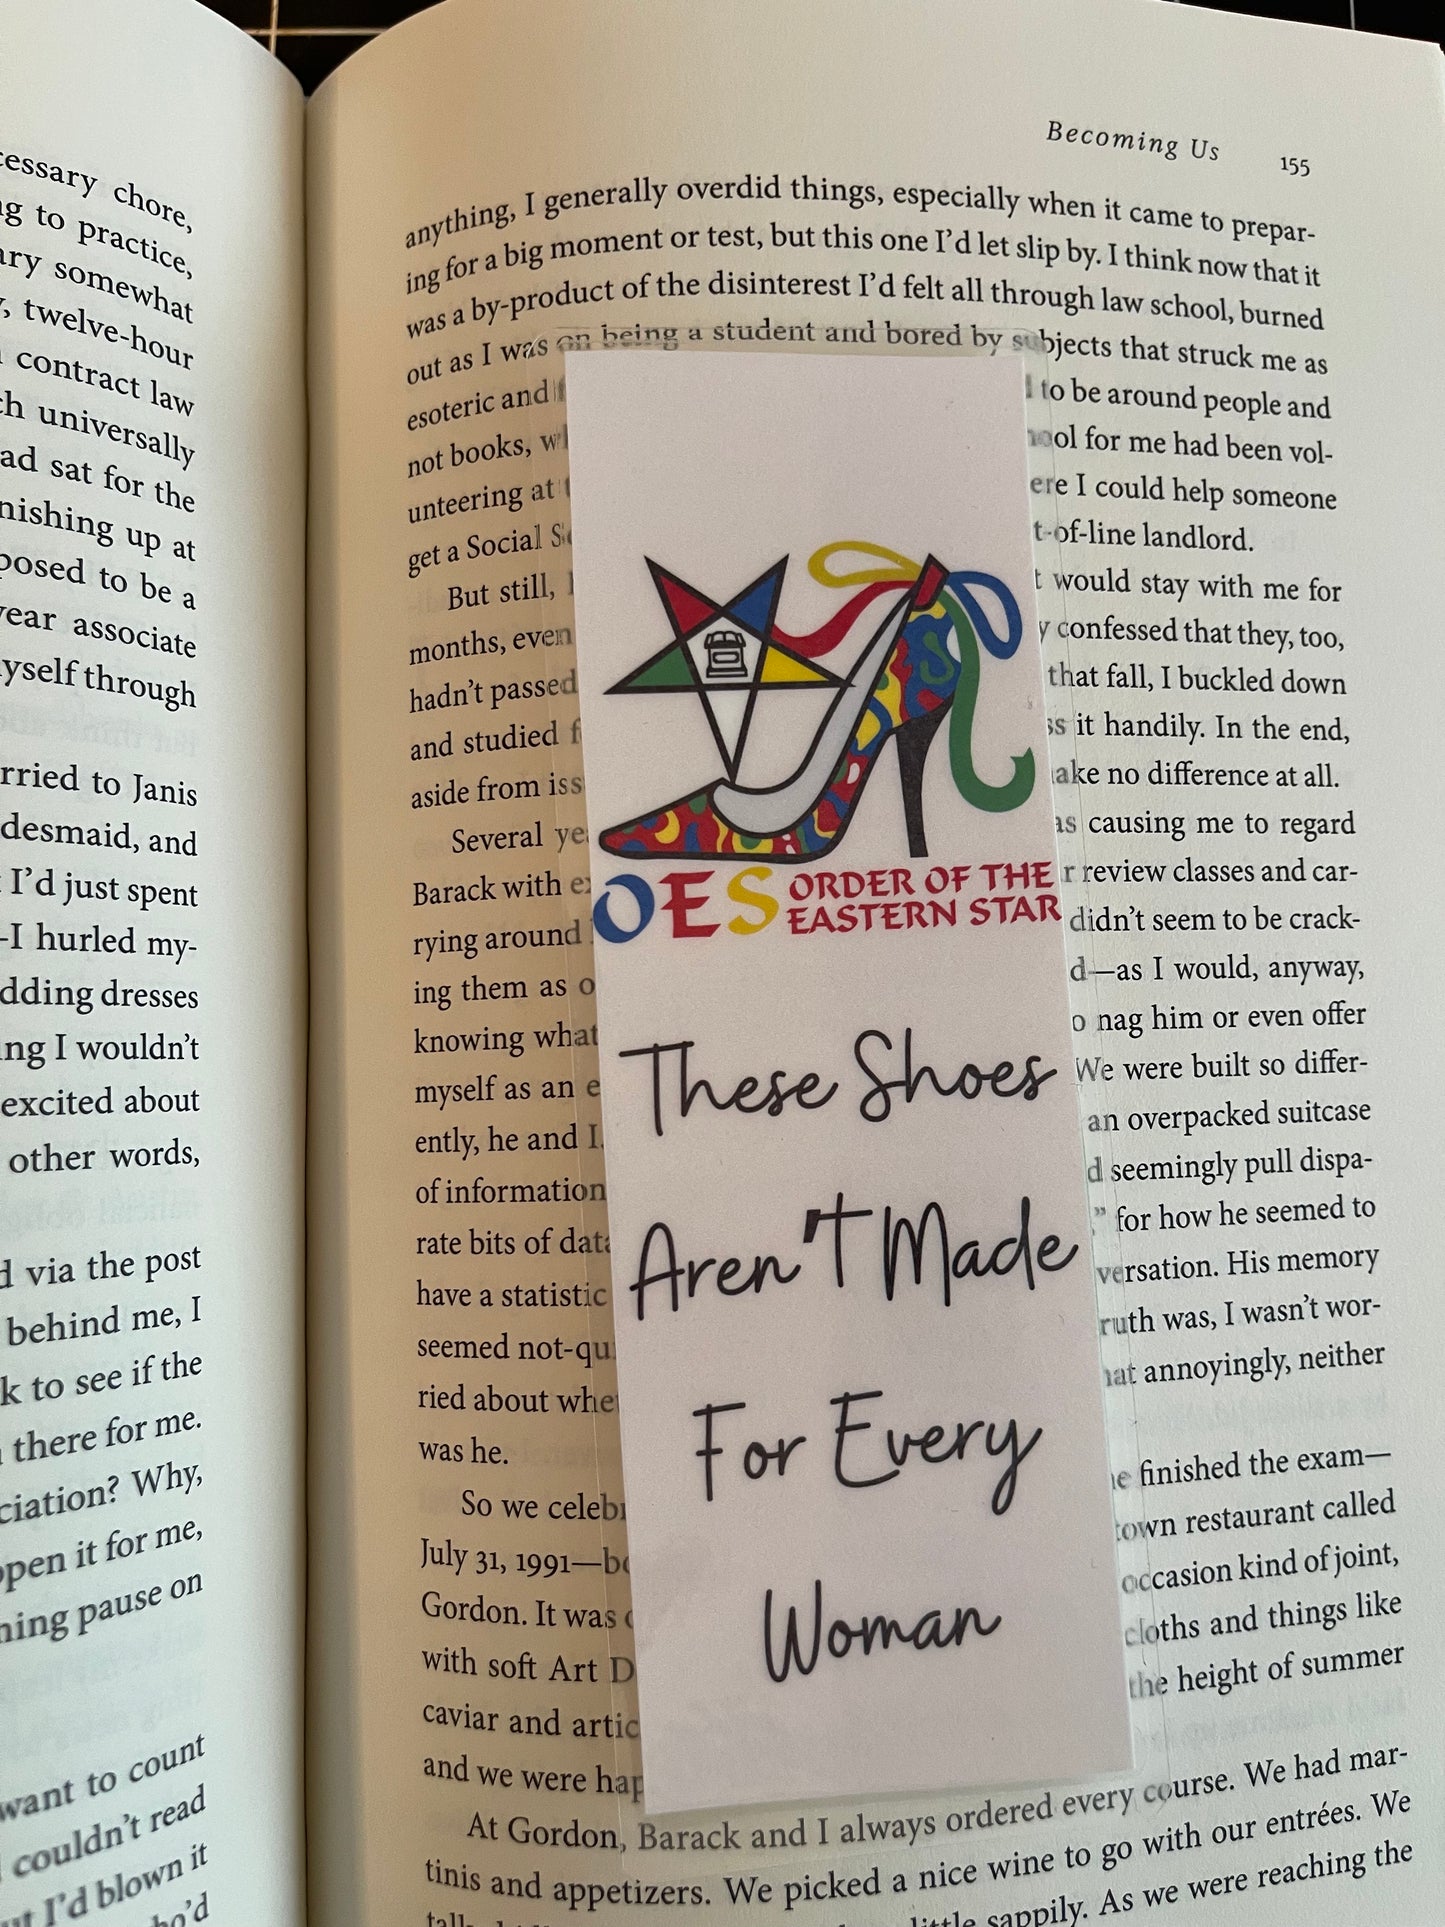 cessary chore,
ng to practice,
ary somewhat
twelve-hour
contract law
ch universally
ad sat for the
nishing up at
posed to be a
year associate
yself through
rried to Janis
desmaid, and
I'd just spent
–I hurled my-
dding dresses
ing I wouldn't
excited about
other words,
d via the post
behind me, I
k to see if the
there for me.
ciation? Why,
open it for me,
ning pause on
want to count
couldn't read
I'd blown it
ho'd
Becoming Us 155
anything, I generally overdid things, especially when it came to prepar-
ing for a big moment or test, but this one I'd let slip by. I think now that it
was a by-product of the disinterest I'd felt all through law school, burned
out as I was on being a student and bored by subjects that struck me as
esoteric and to be around people and
not books, ool for me had been vol-
unteering at ere I could help someone
get a Social t-of-line landlord.
But still, would stay with me for
months, even y confessed that they, too,
hadn't passed that fall, I buckled down
and studied ss it handily. In the end,
aside from iss ake no difference at all.
Several ye as causing me to regard
Barack with e r review classes and car-
rying around didn't seem to be crack-
ing them as o d—as I would, anyway,
knowing what o nag him or even offer
myself as an e We were built so differ-
ently, he and I. an overpacked suitcase
of information d seemingly pull dispa-
rate bits of data ” for how he seemed to
have a statistic versation. His memory
seemed not-qu ruth was, I wasn't wor-
ried about whe hat annoyingly, neither
was he.
So we celeb e finished the exam—
July 31, 1991—b town restaurant called
Gordon. It was occasion kind of joint,
with soft Art D cloths and things like
caviar and artic the height of summer
and we were hap
At Gordon, Barack and I always ordered every course. We had mar-
tinis and appetizers. We picked a nice wine to go with our entrées. We
little sappily. As we were reaching the
OES ORDER OF THE
EASTERN STAR
These Shoes
Aren't Made
For Every
Woman